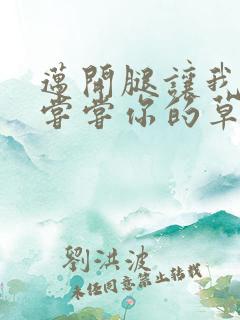 邁開腿讓我
嘗嘗你的草
劉洪波
未經同意禁止轉載